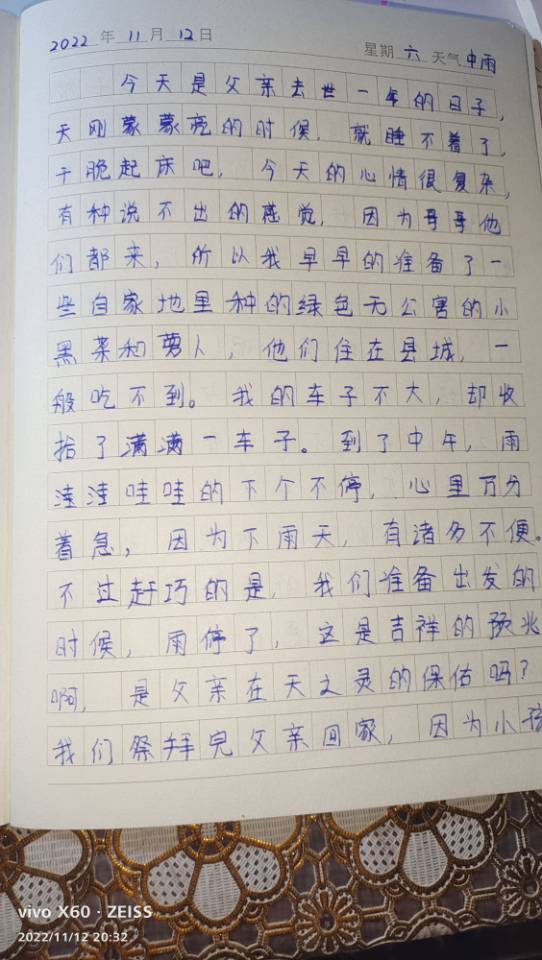 2022 年 11 月 12 日
星期 六 天气 中雨
今天是父亲去世一年的日子，
天刚蒙蒙亮的时候，就睡不着了，
干脆起床吧，今天的心情很复杂，
有种说不出的感觉，因为哥哥他
们都来，所以我早早的准备了一
些自家地里种的绿色无公害的小
黑菜和萝卜，他们住在县城，一
般吃不到。我的车子不大，却收
拾了满满一车子。到了中午，雨
洼洼哇哇的下个不停，心里万分
着急，因为下雨天，有诸多不便。
不过赶巧的是，我们准备出发的
时候，雨停了，这是吉祥的预兆
啊，是父亲在天之灵的保佑吗？
我们祭拜完父亲回家，因为小孩
vivo X60 · ZEISS
2022/11/12 20:32